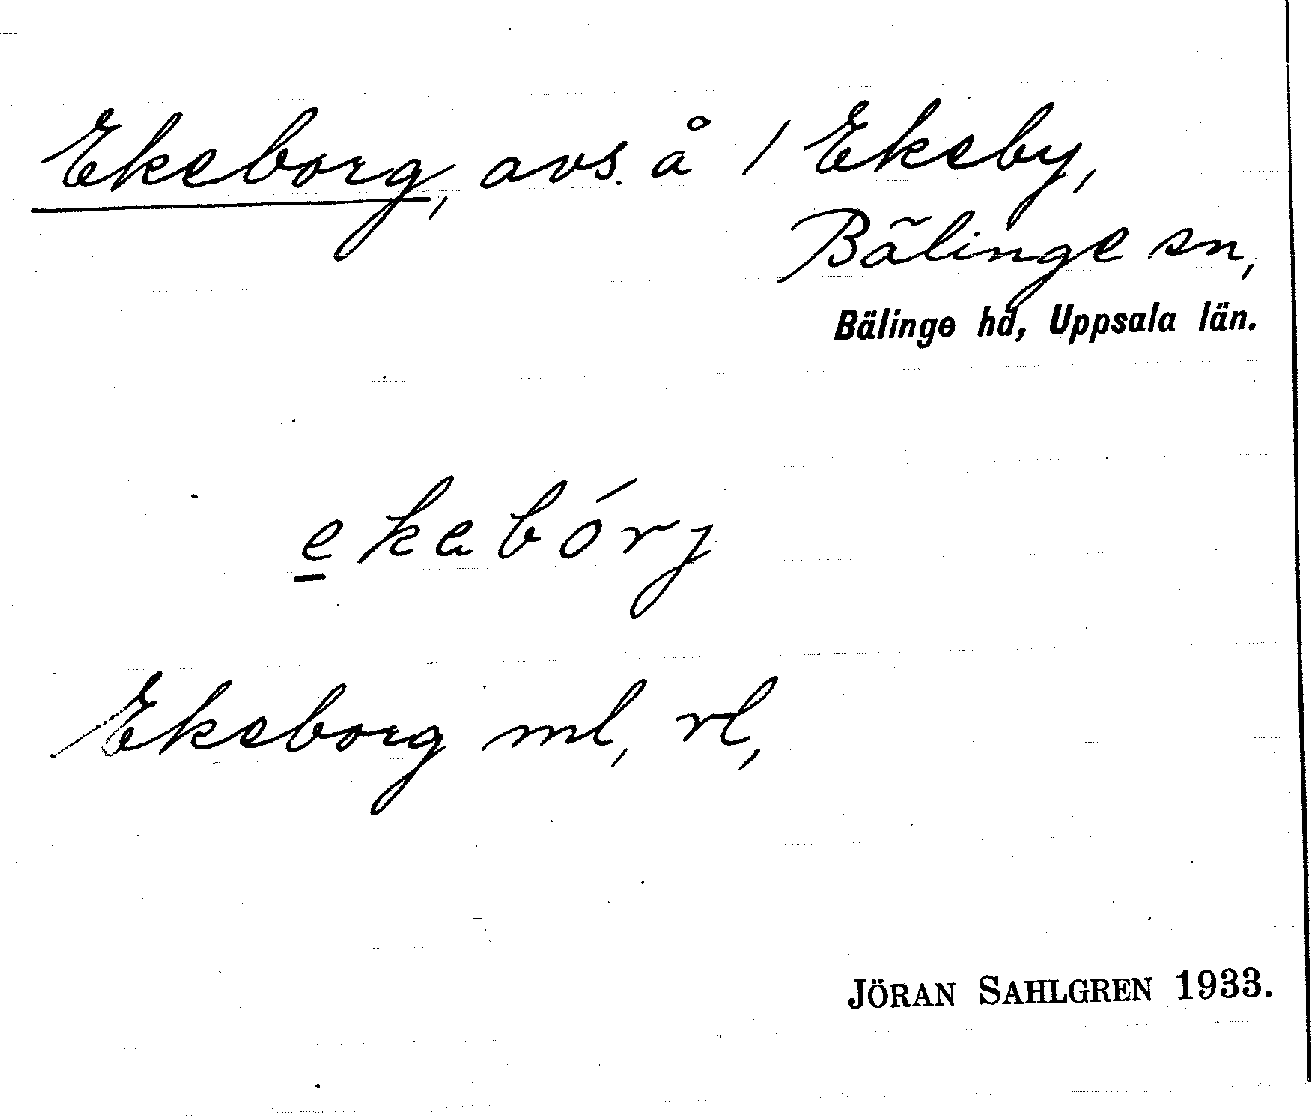 Ekeborg, avs. å 1 Ekeby,
Bälinge sn,
Bälinge hd, Uppsala län.
ekebórj
Ekeborg ml, rl,
JÖRAN SAHLGREN 1933.